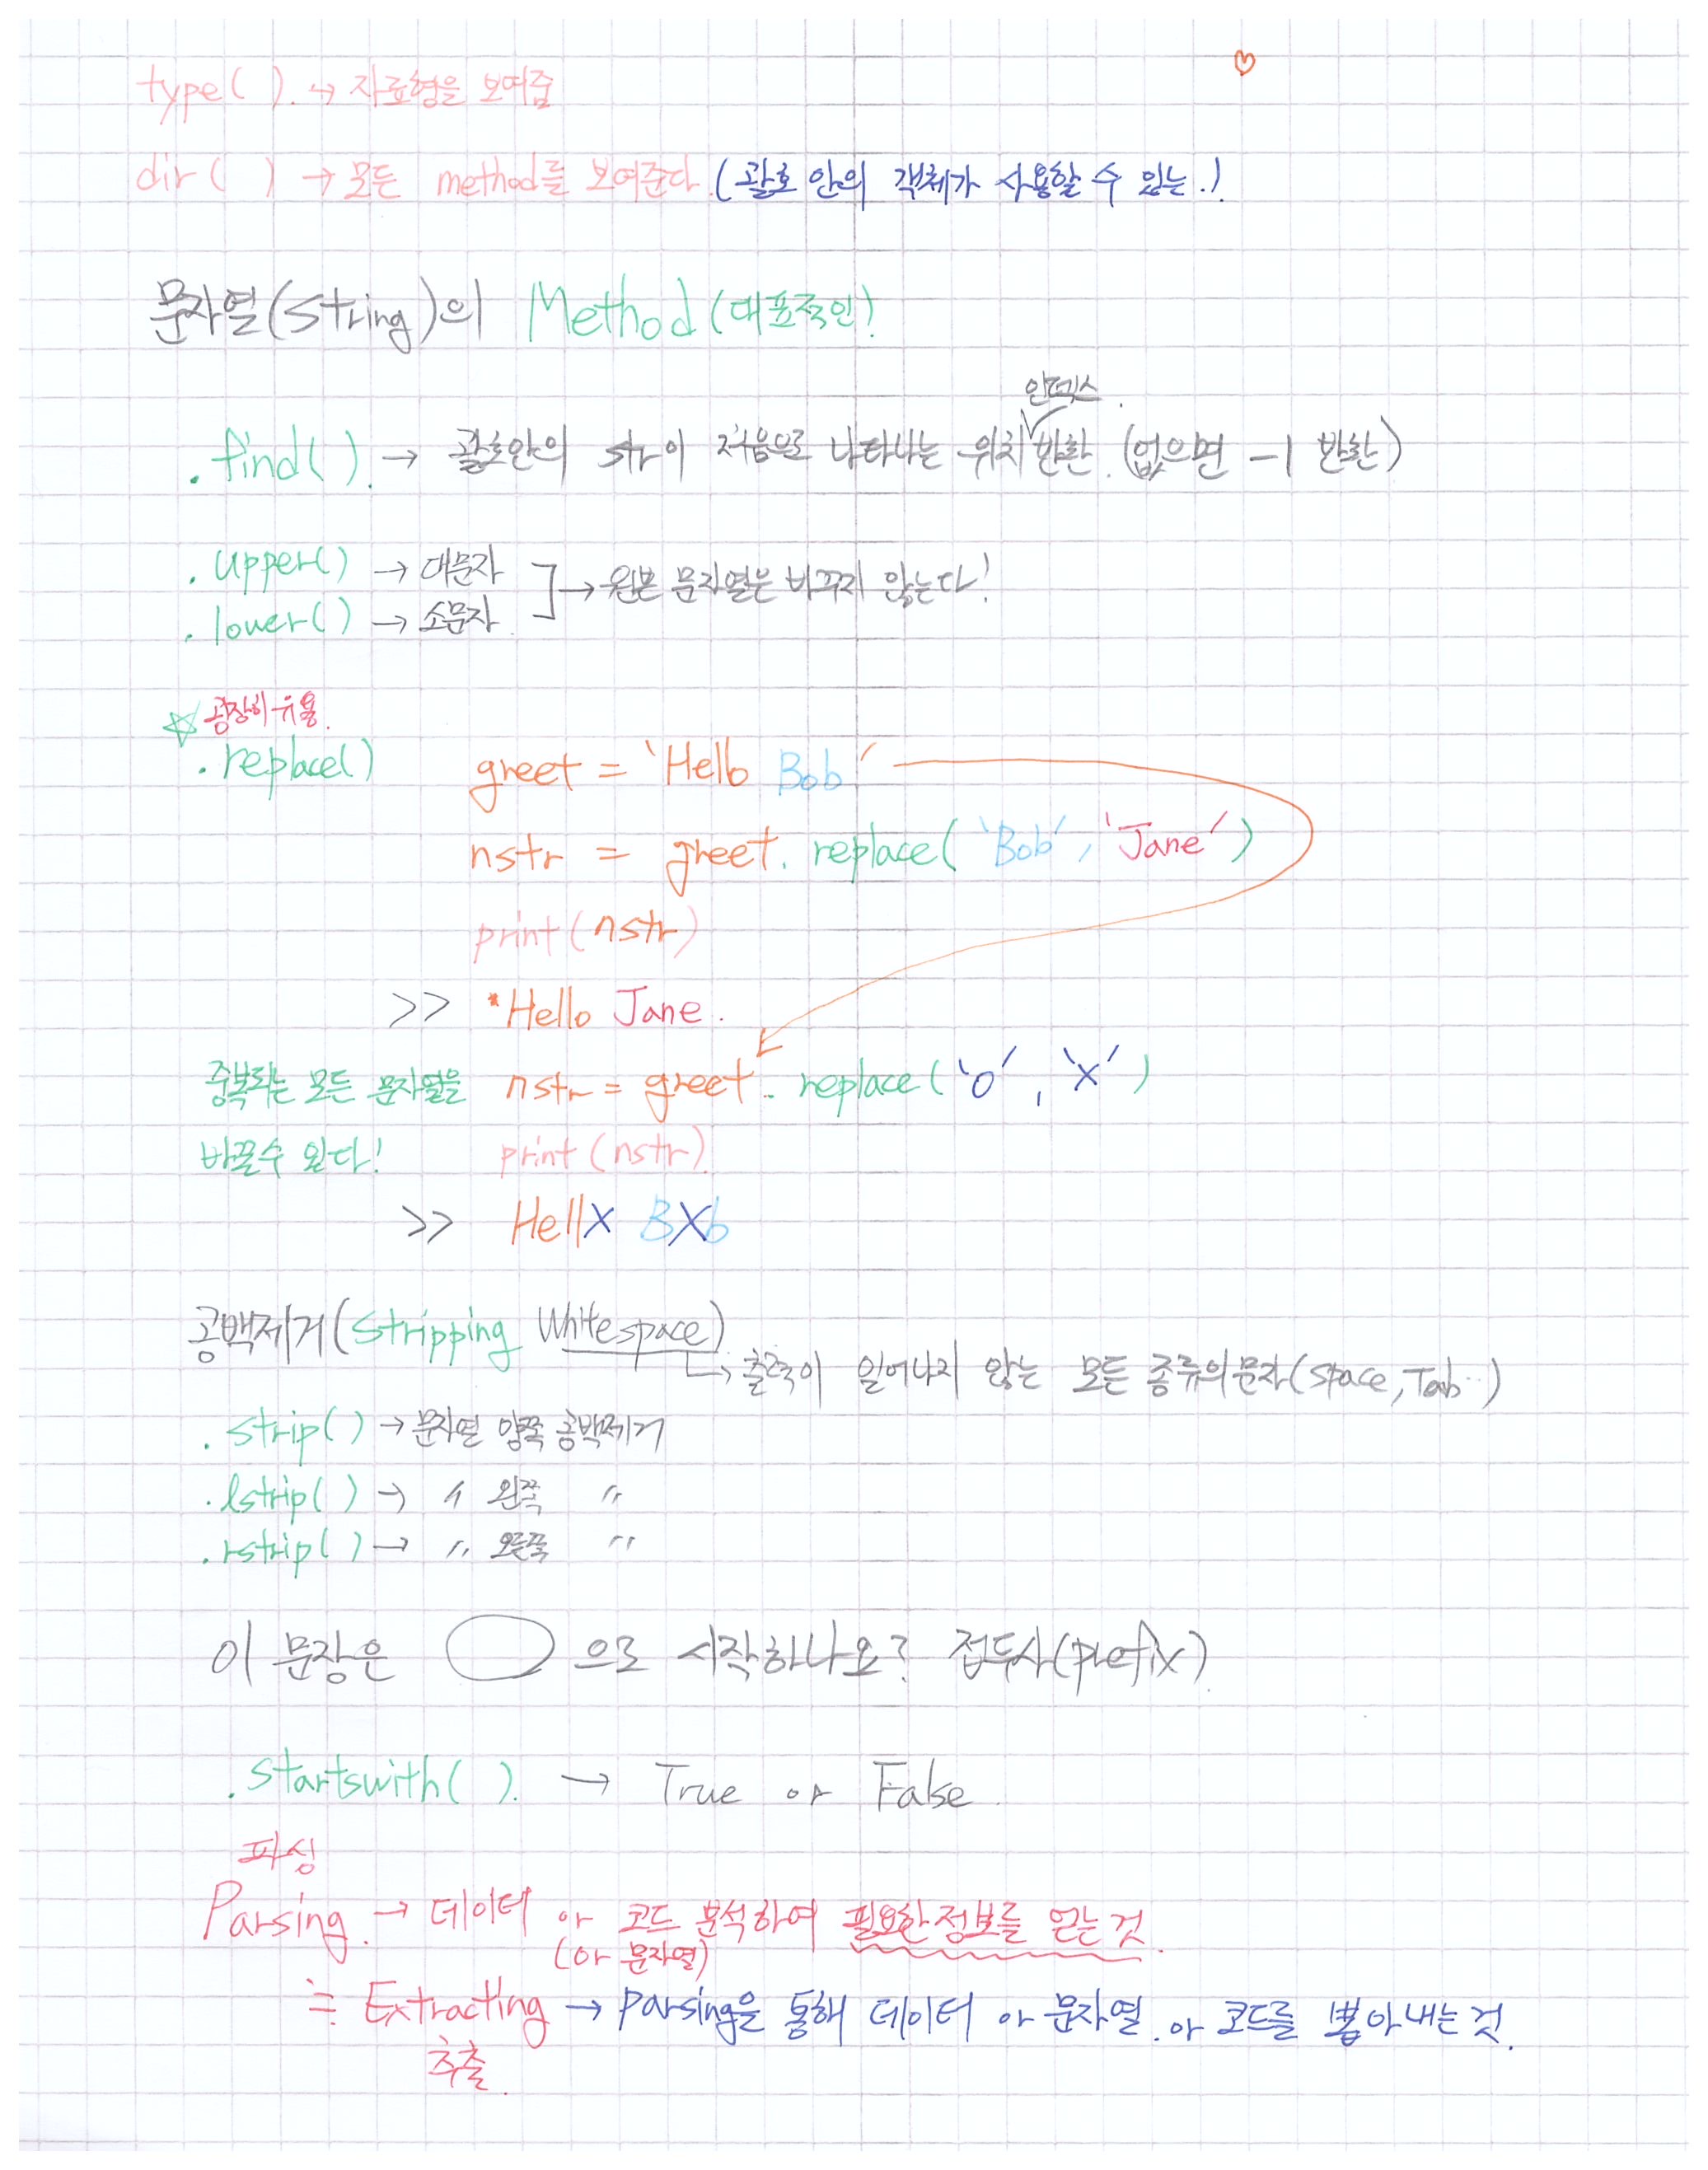 type( ). → 자료형을 보여줌
dir( ) → 모든 method를 보여준다. (괄호 안의 객체가 사용할 수 있는.)
문자열(String)의 Method(대표적인)
인덱스.
.find( ). → 괄호안의 str이 처음으로 나타나는 위치 ✓반환. (없으면 -1 반환)
.upper() → 대문자
.lower() → 소문자.
→ 원본 문자열은 바꾸지 않는다!
☆ 굉장히 유용.
.replace()
greet = 'Hello Bob'
nstr = greet. replace('Bob', 'Jane')
print(nstr)
>> Hello Jane.
중복되는 모든 문자열을 nstr = greet. replace('o', 'X')
바꿀수 있다! print(nstr)
>> HellX BXb
공백제거(Stripping Whitespace)
↳ 출력이 일어나지 않는 모든 종류의 문자(Space, Tab..)
.strip() → 문자열 양쪽 공백제거
.lstrip( ) → 〃 왼쪽 〃
.rstrip( ) → 〃 오른쪽 〃
이 문장은 ◯으로 시작하나요? 접두사(prefix).
.startswith( ). → True or False.
파싱
Parsing. → 데이터 or 코드 분석하여 필요한 정보를 얻는 것.
(or 문자열)
≒ Extracting → parsing을 통해 데이터 or 문자열. or 코드를 뽑아내는 것.
추출.